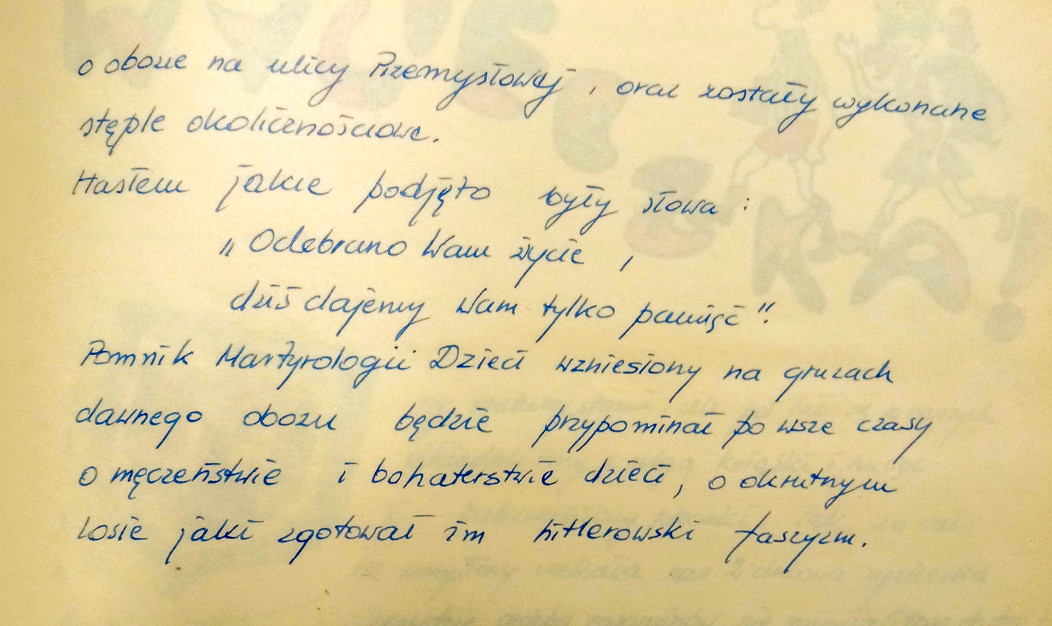 o obozie na ulicy Przemysłowej, oraz zostały wykonane
stęple okolicznościowe.
Hasłem jakie podjęto były słowa:
"Odebrano Wam życie,
dziś dajemy Wam tylko pamięć".
Pomnik Martyrologii Dzieci wzniesiony na gruzach
dawnego obozu będzie przypominał po wsze czasy
o męczeństwie i bohaterstwie dzieci, o okrutnym
losie jaki zgotował im hitlerowski faszyzm.